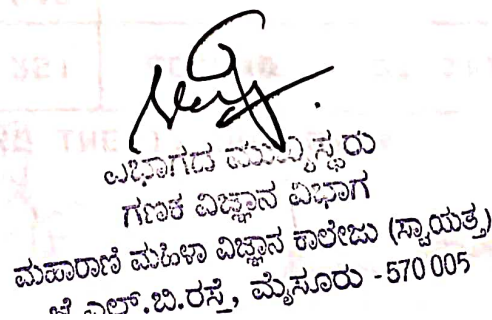 ವಿಭಾಗದ ಮುಖ್ಯಸ್ಥರು
ಗಣಕ ವಿಜ್ಞಾನ ವಿಭಾಗ
ಮಹಾರಾಣಿ ಮಹಿಳಾ ವಿಜ್ಞಾನ ಕಾಲೇಜು (ಸ್ವಾಯತ್ತ)
ಜೆ.ಎಲ್.ಬಿ.ರಸ್ತೆ, ಮೈಸೂರು -570 005